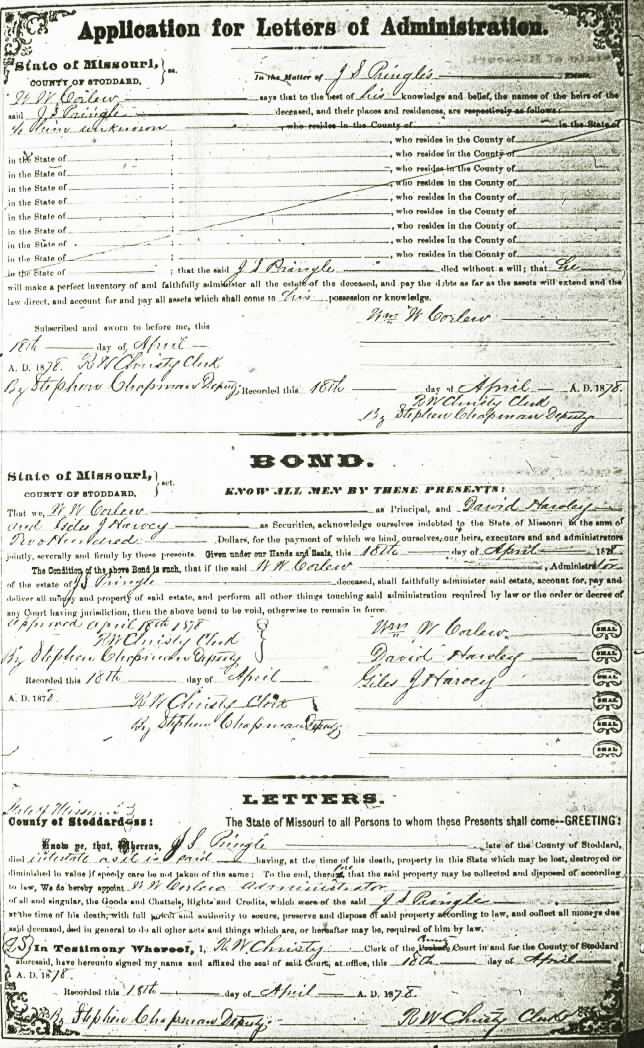 Application for Letters of Administration.
State of Missouri, } ss.
COUNTY OF STODDARD,
In the Matter of J S Pringles Estate.
W W Corlew says that to the best of his knowledge and belief, the names of the heirs of the
said J S Pringle deceased, and their places and residences, are respectively as follows:
unknown , who resides in the County of in the State of
; , who resides in the County of
in the State of ; , who resides in the County of
in the State of ; , who resides in the County of
in the State of ; , who resides in the County of
in the State of ; , who resides in the County of
in the State of ; , who resides in the County of
in the State of ; , who resides in the County of
in the State of ; , who resides in the County of
in the State of ; that the said J S Pringle died without a will; that he
will make a perfect inventory of and faithfully administer all the estate of the deceased, and pay the debts as far as the assets will extend and the
law direct, and account for and pay all assets which shall come to his possession or knowledge.
Wm W Corlew
Subscribed and sworn to before me, this
18th day of April
A. D. 1878. R W Christy Clerk
By Stephen Chapman Deputy
Recorded this 18th day of April A. D. 1878.
R W Christy Clerk
By Stephen Chapman Deputy
BOND.
State of Missouri, } sct.
COUNTY OF STODDARD,
KNOW ALL MEN BY THESE PRESENTS:
That we, W W Corlew as Principal, and David Harvey
and Giles J Harvey as Securities, acknowledge ourselves indebted to the State of Missouri in the sum of
Two Hundred Dollars, for the payment of which we bind ourselves, our heirs, executors and and administrators
jointly, severally and firmly by these presents. Given under our Hands and Seals, this 18th day of April 1878
The Condition of the above Bond is such, that if the said W W Corlew , Administrator
of the estate of J S Pringle deceased, shall faithfully administer said estate, account for, pay and
deliver all money and property of said estate, and perform all other things touching said administration required by law or the order or decree of
any Court having jurisdiction, then the above bond to be void, otherwise to remain in force.
Approved April 18th 1878
R W Christy Clerk
By Stephen Chapman Deputy
Wm W Corlew SEAL
David Harvey SEAL
Giles J Harvey SEAL
SEAL
SEAL
SEAL
Recorded this 18th day of April
A. D. 1878 R W Christy Clerk
By Stephen Chapman Deputy
LETTERS.
State of Missouri }
County of Stoddard ss: The State of Missouri to all Persons to whom these Presents shall come--GREETING:
Know ye, that, Whereas, J S Pringle late of the County of Stoddard,
died intestate as it is said having, at the time of his death, property in this State which may be lost, destroyed or
diminished in value if speedy care be not taken of the same; To the end, therefore, that the said property may be collected and disposed of according
to law, We do hereby appoint W W Corlew administrator
of all and singular, the Goods and Chattels, Rights and Credits, which were of the said J S Pringle
at the time of his death, with full power and authority to secure, preserve and dispose of said property according to law, and collect all moneys due
said deceased, and in general to do all other acts and things which are, or hereafter may be, required of him by law.
LS In Testimony Whereof, I, R W Christy Clerk of the Probate Court in and for the County of Stoddard
aforesaid, have hereunto signed my name and affixed the seal of said Court, at office, this 18th day of April
A. D. 1878.
Recorded this 18th day of April A. D. 1878.
By Stephen Chapman Deputy R W Christy Clerk